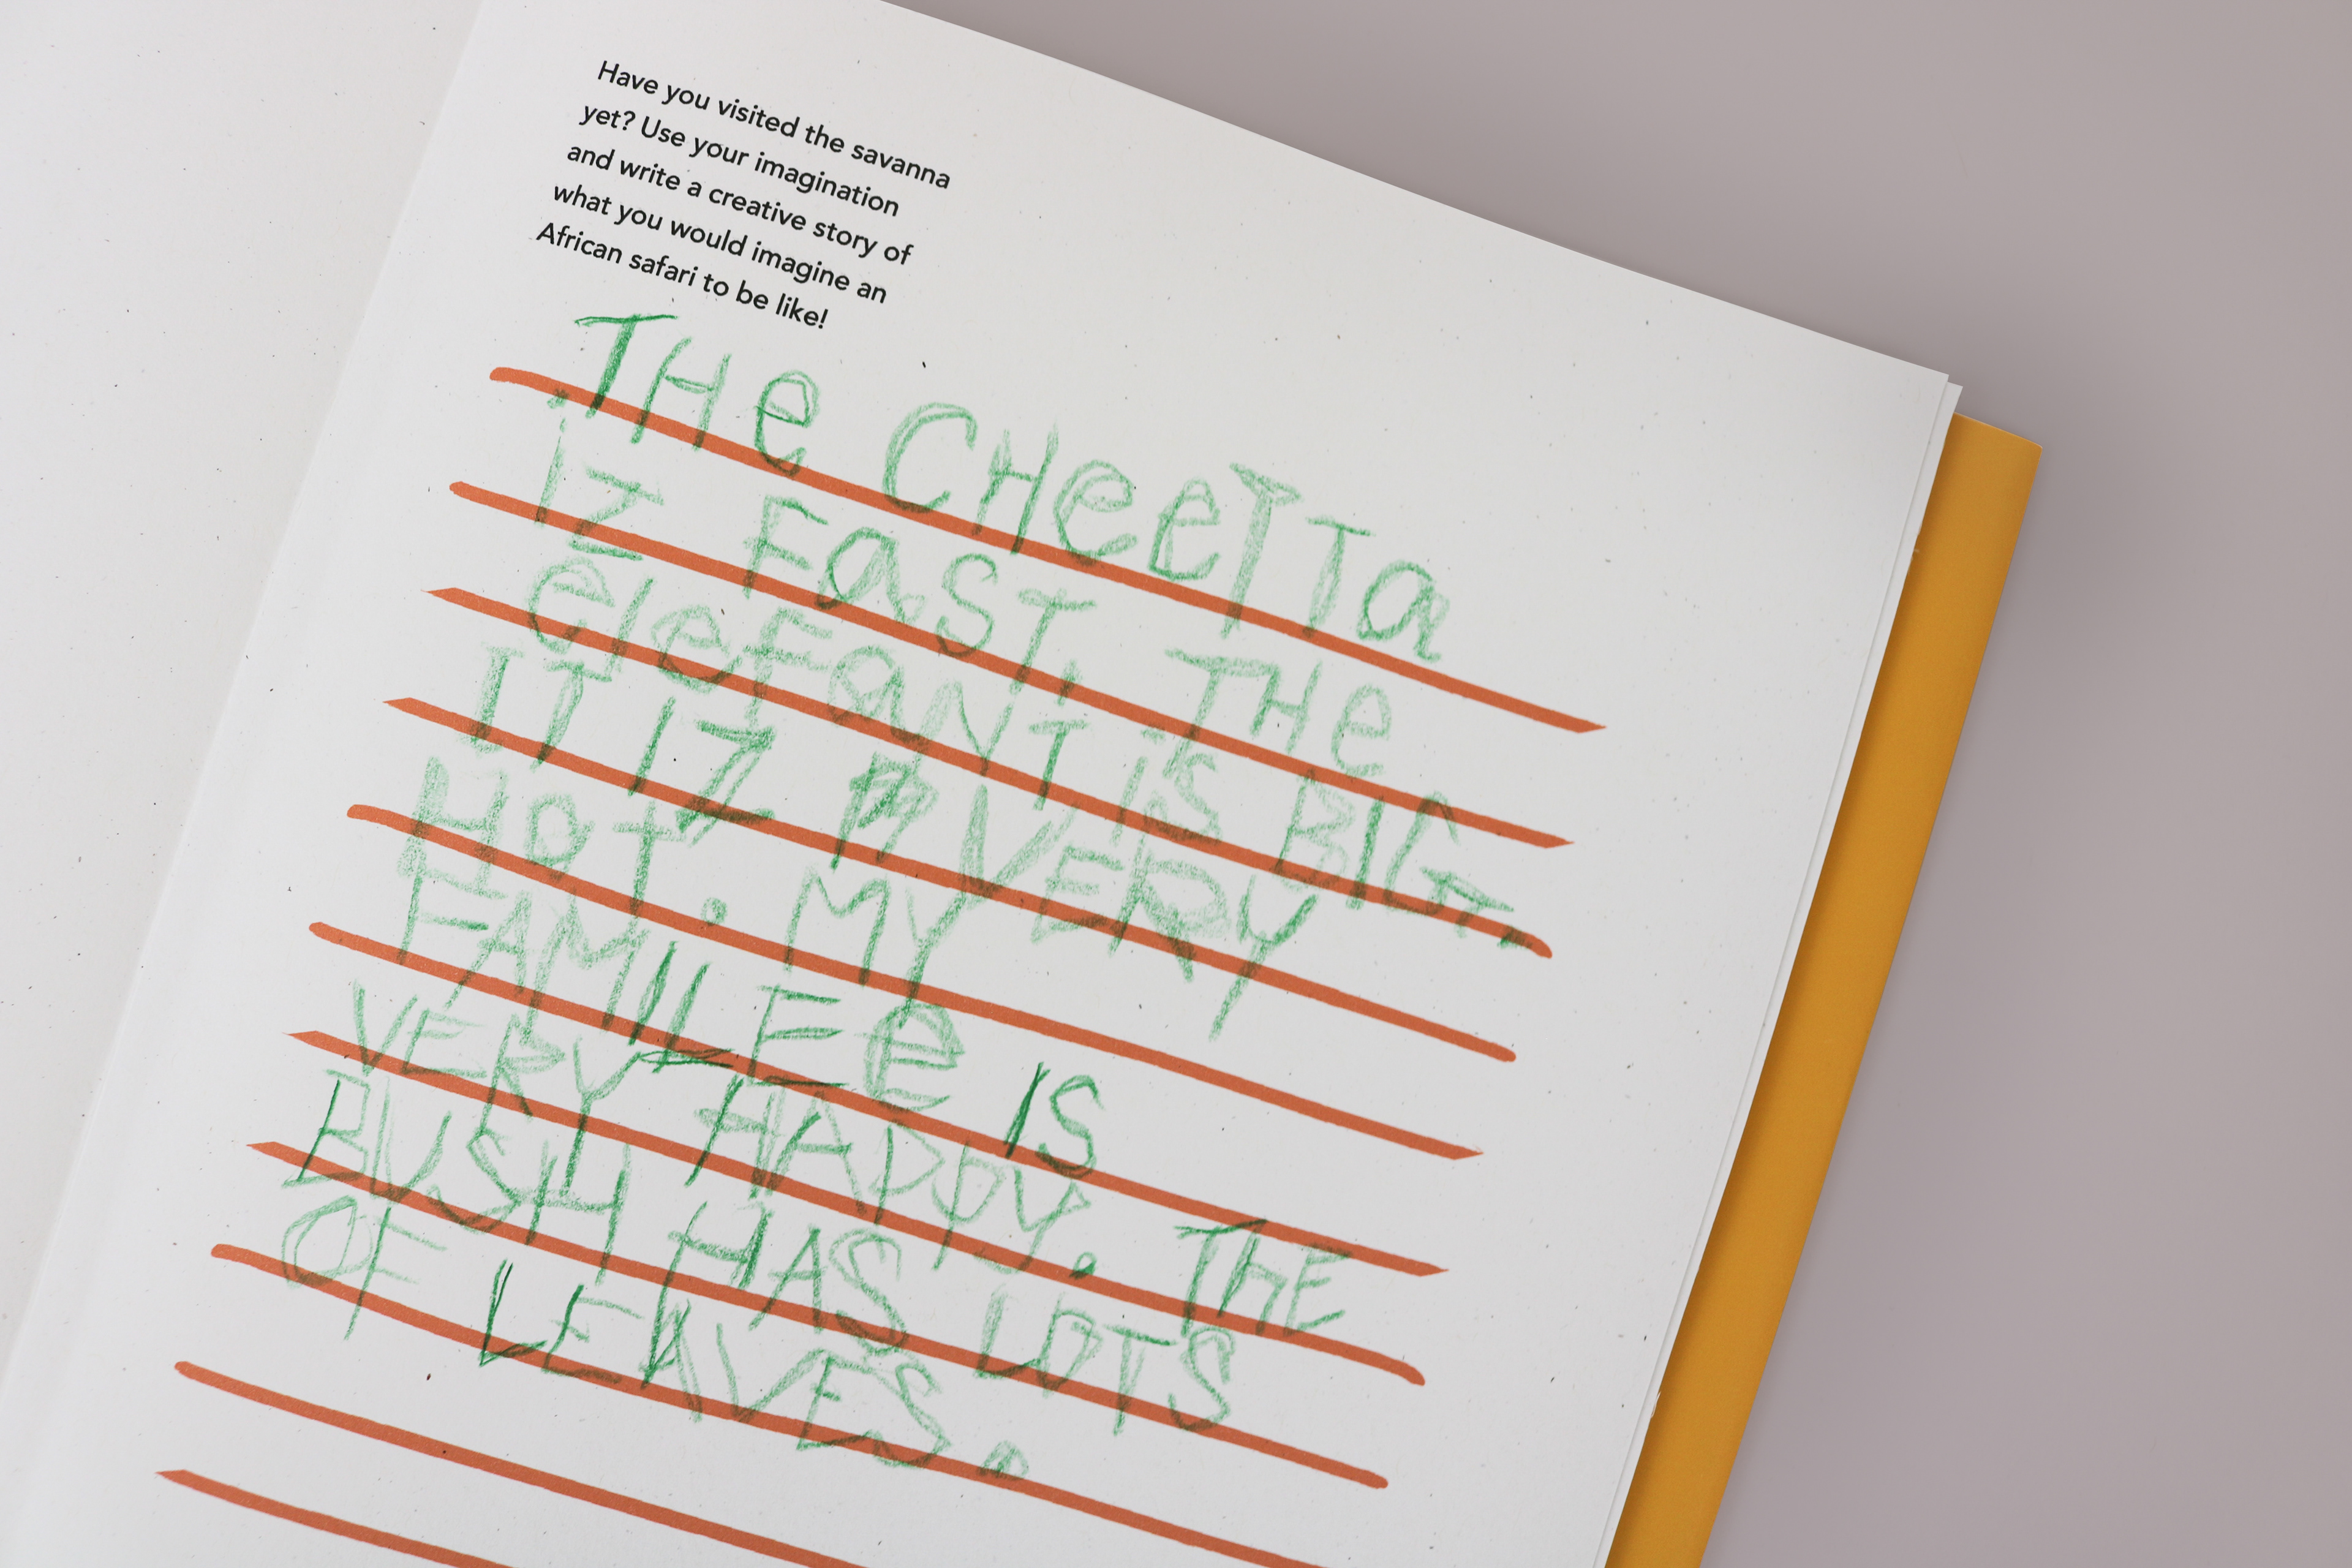 Have you visited the savanna
yet? Use your imagination
and write a creative story of
what you would imagine an
African safari to be like!
THe CHeeTTa
iZ FaST. THe
eleFaNT iS BIG.
IT IZ VERY
Hot. MY
FAMILEe IS
VERY HAPpy. THE
BUSH HAS LOTS
OF LEAVES.